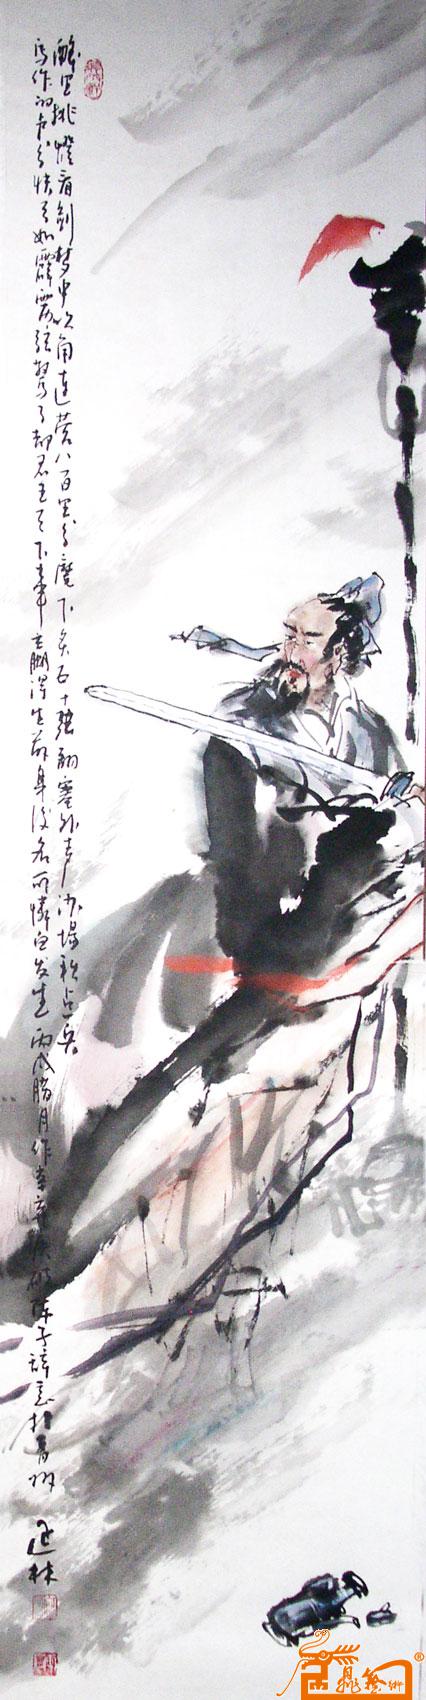 醉里挑燈看剑梦中吹角连营八百里分麾下炙五十弦翻塞外声沙场秋点兵
马作的卢飞快弓如霹雳弦惊了却君王天下事赢得生前身后名可怜白发生 丙戌腊月作辛弃疾破阵子词意于青州 延林